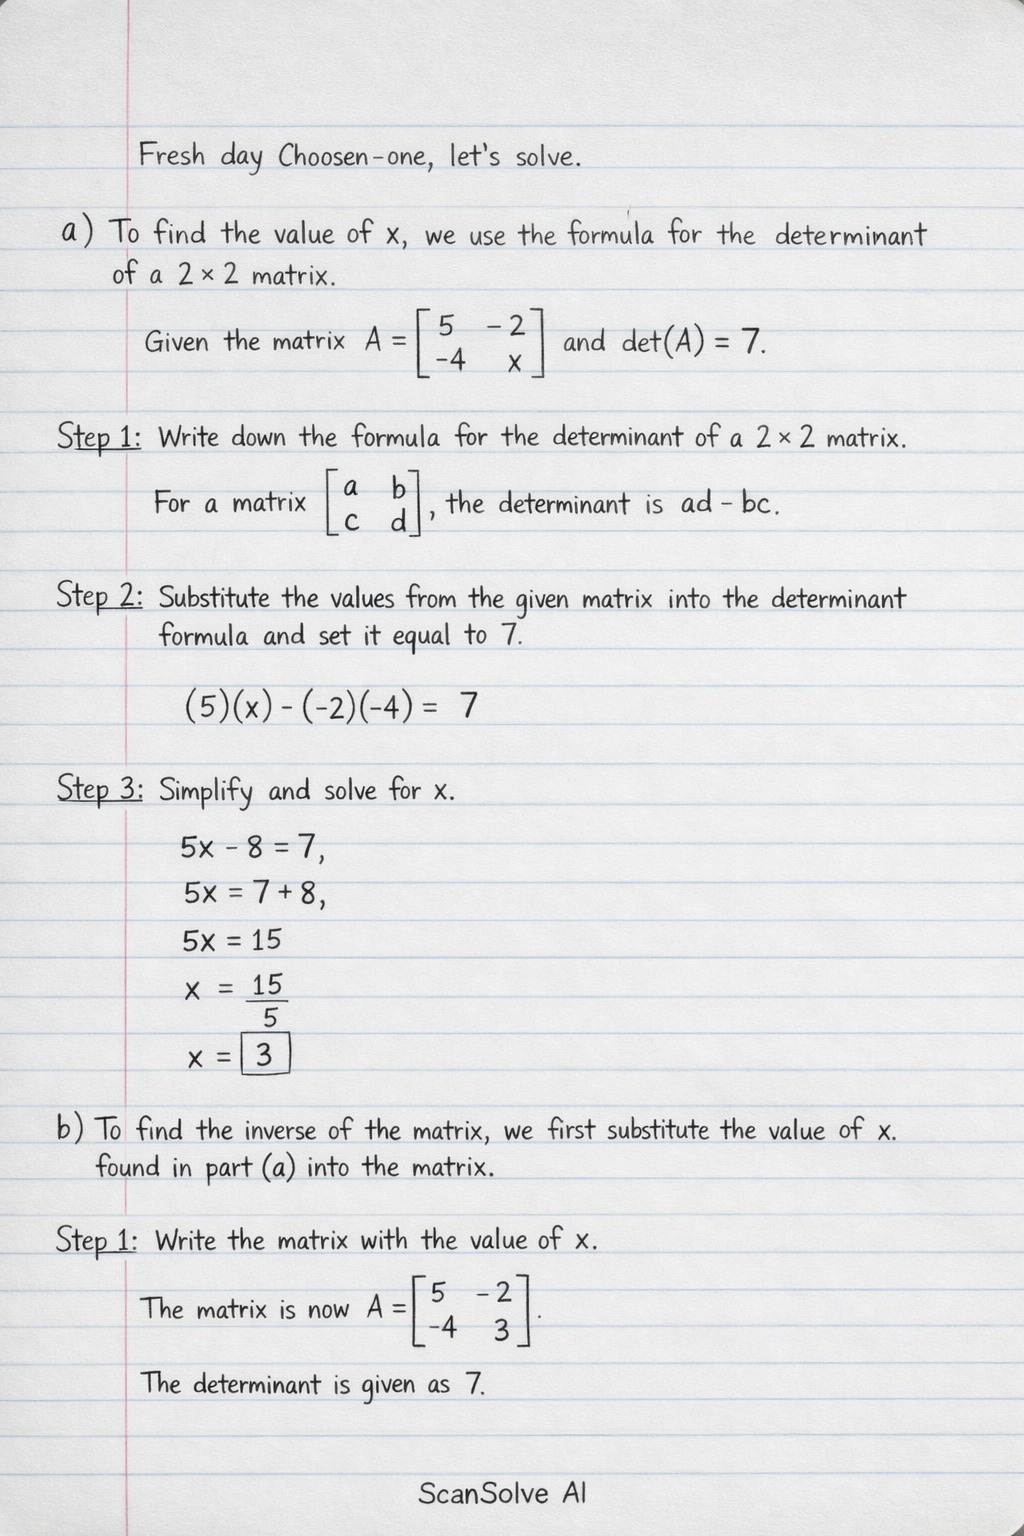 Fresh day Choosen-one, let's solve.
a) To find the value of x, we use the formula for the determinant
of a 2 × 2 matrix.
Given the matrix A = [5 -2; -4 x] and det(A) = 7.
Step 1: Write down the formula for the determinant of a 2 × 2 matrix.
For a matrix [a b; c d], the determinant is ad - bc.
Step 2: Substitute the values from the given matrix into the determinant
formula and set it equal to 7.
(5)(x) - (-2)(-4) = 7
Step 3: Simplify and solve for x.
5x - 8 = 7,
5x = 7 + 8,
5x = 15
x = 15/5
x = 3
b) To find the inverse of the matrix, we first substitute the value of x.
found in part (a) into the matrix.
Step 1: Write the matrix with the value of x.
The matrix is now A = [5 -2; -4 3].
The determinant is given as 7.
ScanSolve AI